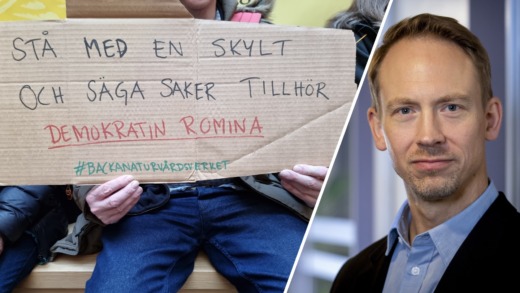 STÅ MED EN SKYLT
OCH SÄGA SAKER TILLHÖR
DEMOKRATIN ROMINA
#BACKANATURVÅRDSVERKET